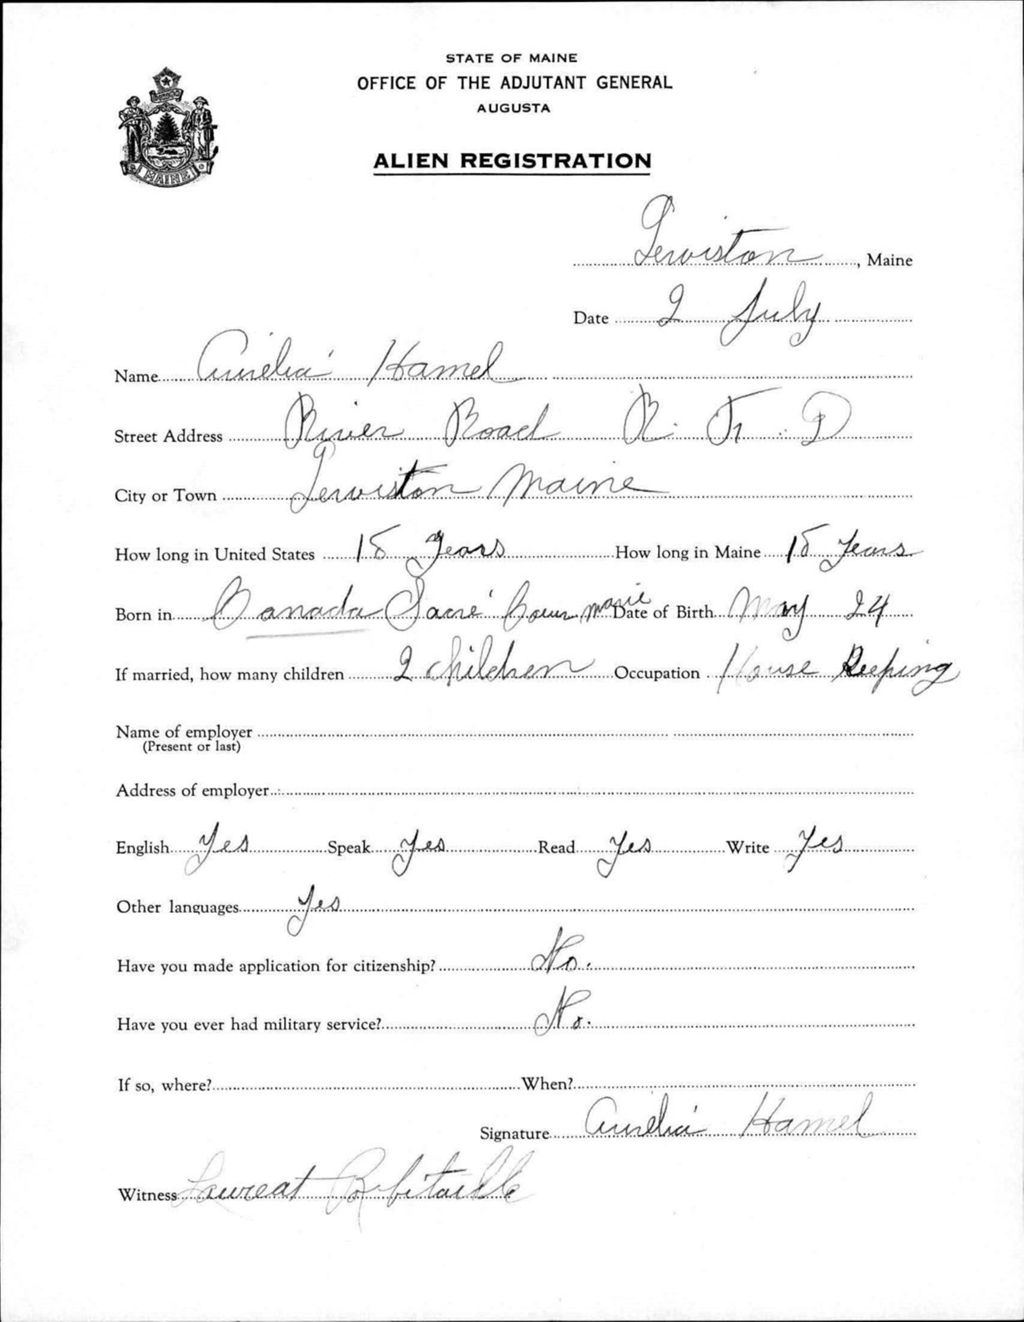 STATE OF MAINE
OFFICE OF THE ADJUTANT GENERAL
AUGUSTA
ALIEN REGISTRATION
MAINE
Lewiston, Maine
Date 2 July
Name Aurelia Hamel
Street Address River Road R. F. D
City or Town Lewiston Maine
How long in United States 18 Years How long in Maine 18 Years
Born in Canada Sacré Coeur Marie Date of Birth May 24
If married, how many children 2 children Occupation House Keeping
Name of employer
(Present or last)
Address of employer
English Yes Speak Yes Read Yes Write Yes
Other languages Yes
Have you made application for citizenship? No.
Have you ever had military service? No.
If so, where? When?
Signature Aurelia Hamel
Witness Laureat Robitaille